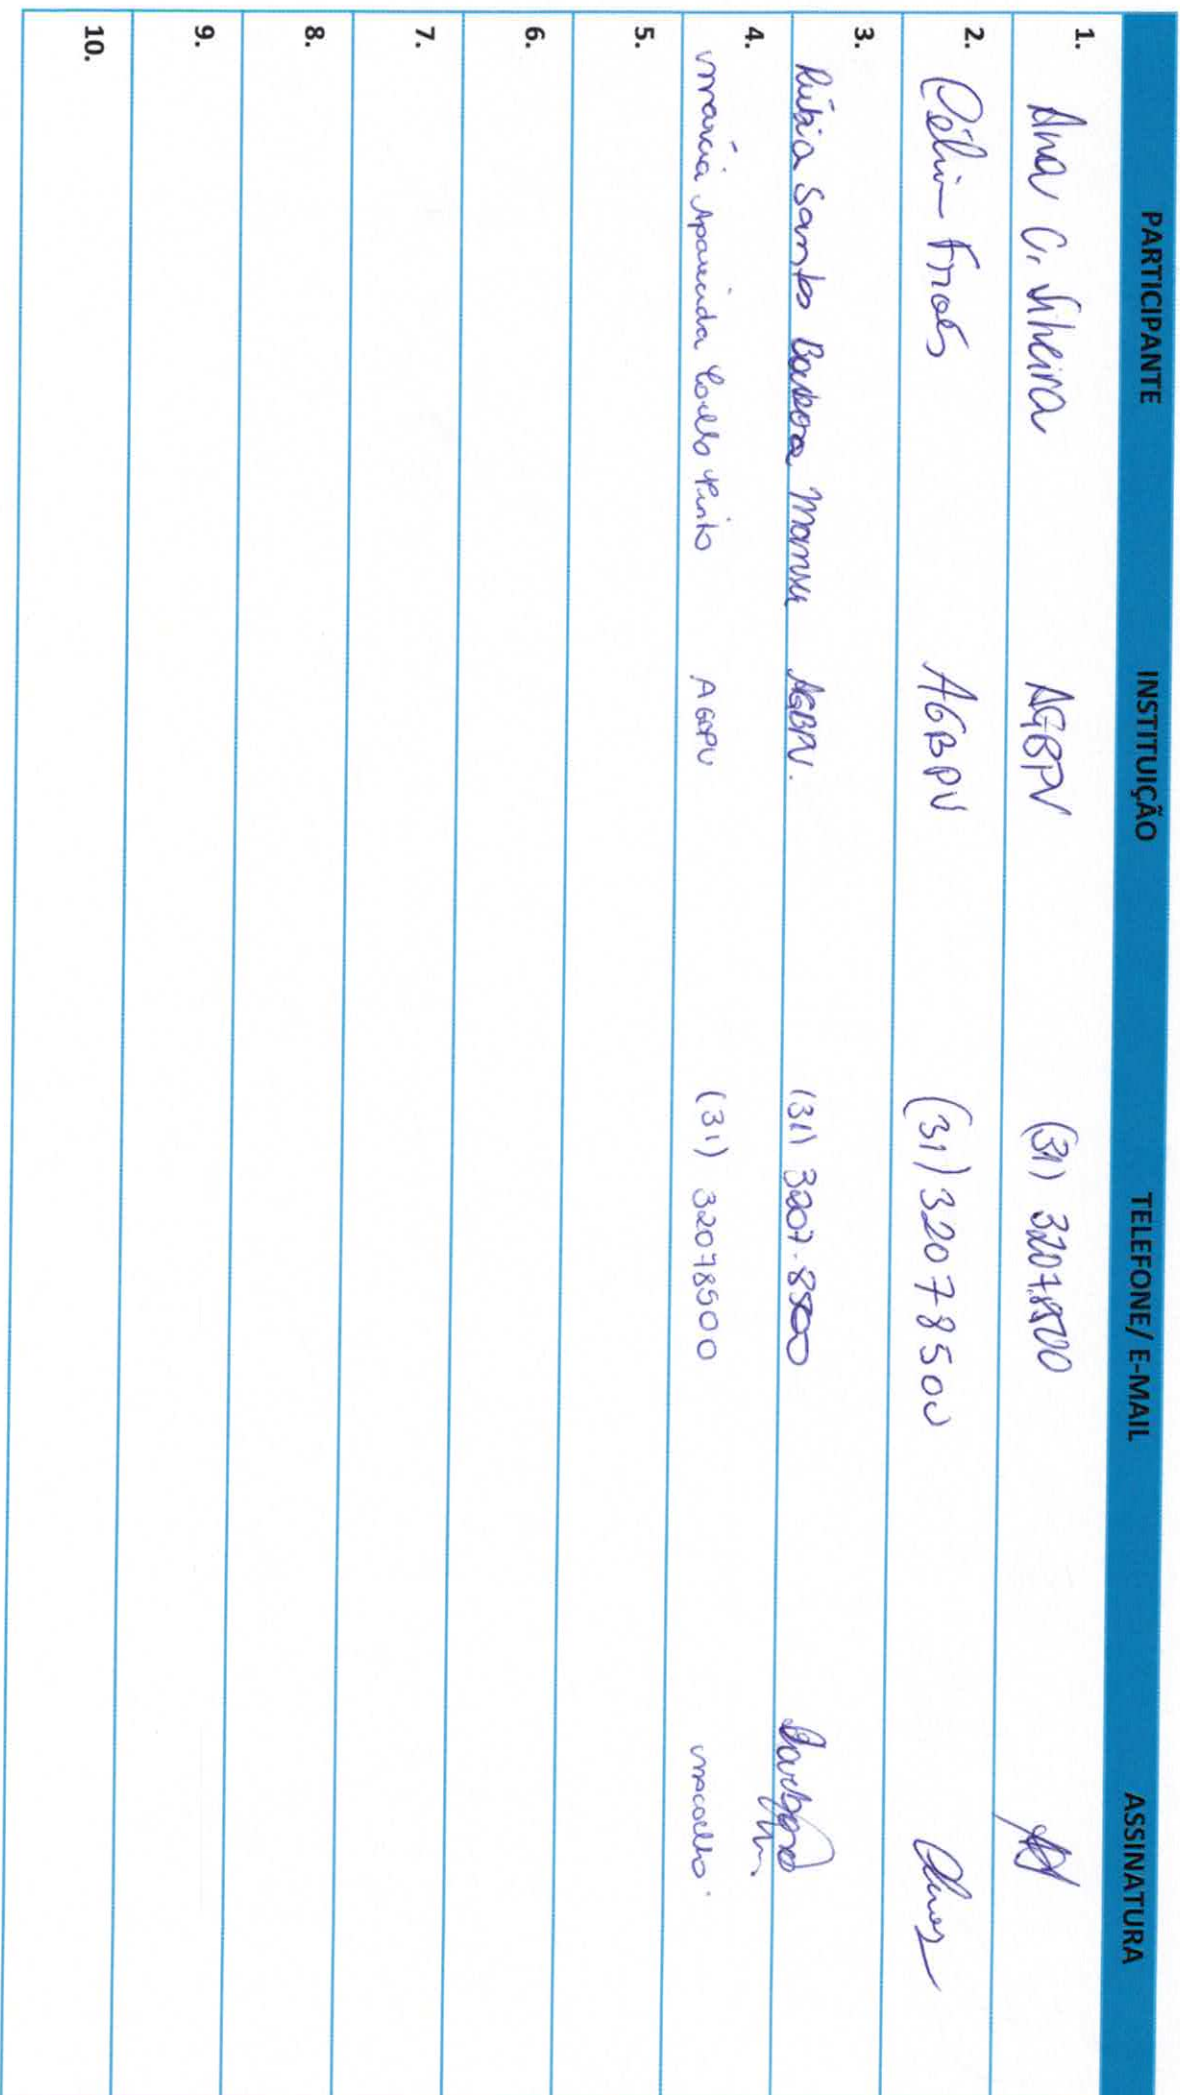 PARTICIPANTE INSTITUIÇÃO TELEFONE/ E-MAIL ASSINATURA
1. Ana C. Silveira AGBPV (31) 3207.8500
2. Célia Fróes AGBPV (31) 3207 8500
3. Rúbia Santos Barbosa Mansur AGBPV. (31) 3207.8500
4. Márcia Aparecida Coelho Pinto AGBPV (31) 32078500 macoelho.
5.
6.
7.
8.
9.
10.